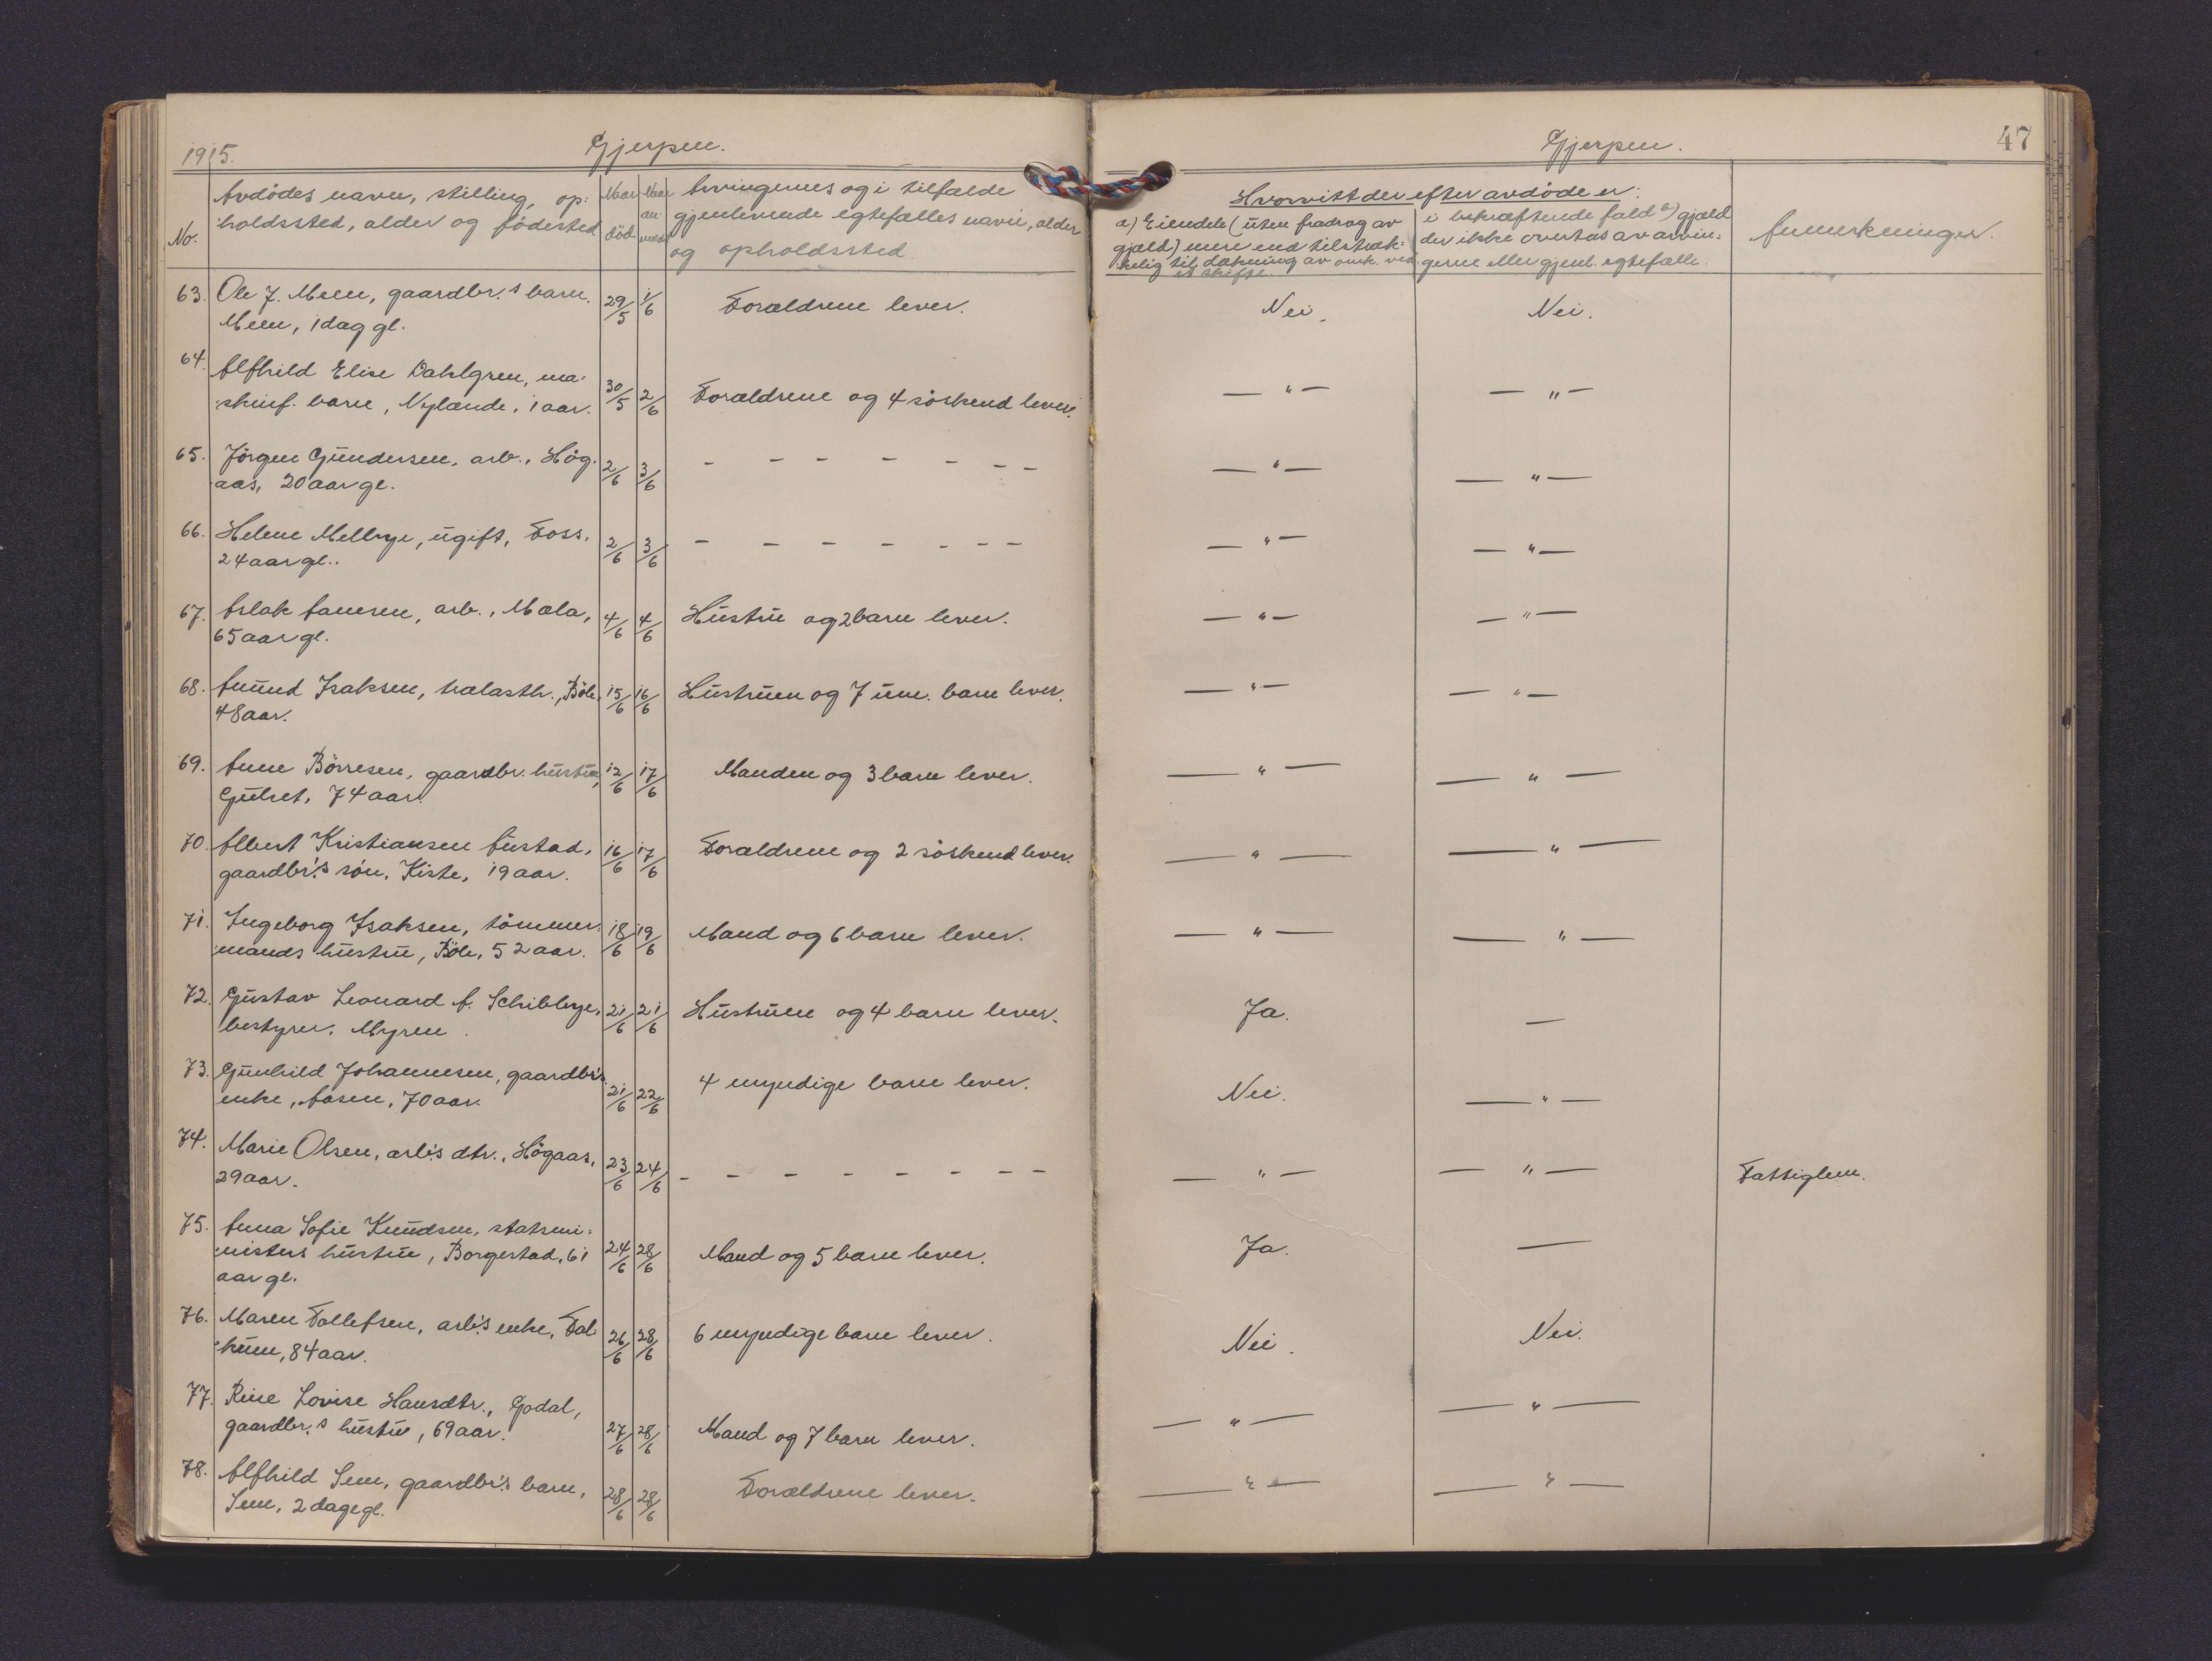 1915. Gjerpen.
No. Avdödes navn, stilling, op- holdssted, alder og födested
Naar död
Naar an meldt
Arvingernes og i tilfælde gjenlevende egtefælles navn, alder og opholdssted.
Gjerpen. 47
Hvorvitt der efter avdöde er:
a) Eiendele (uten fradrag av gjæld) mere end tilstræk- kelig til dækning av omk. ved et skifte
i bekræftende fald a) gjæld der ikke overtas av arvin- gerne eller gjenl. egtefælle.
Anmerkninger.
63. Ole J. Meen, gaardbr.s barn. 29/5 1/6 Forældrene lever. Nei. Nei.
Meen, 1 dag gl.
64. Alfhild Elise Dahlgren, ma-
skinf. barn, Nylænde, 1 aar. 30/5 2/6 Forældrene og 4 söskend lever. — " — — " —
65. Jörgen Gundersen, arb., Hög- 2/6 3/6 - - - - - - - — " — — " —
aas, 20 aar gl.
66. Helene Melbye, ugift, Foss, 2/6 3/6 - - - - - - - — " — — " —
24 aar gl..
67. Aslak Aanesen, arb., Mæla, 4/6 4/6 Hustru og 2 barn lever. — " — — " —
65 aar gl.
68. Amund Isaksen, trælasth., Böle, 15/6 16/6 Hustruen og 7 um. barn lever. — " — — " —
48 aar.
69. Anne Börresen, gaardbr. hustru, 12/6 17/6 Manden og 3 barn lever. — " — — " —
Gulset, 74 aar.
70. Albert Kristiansen Austad, 16/6 17/6 Forældrene og 2 söskend lever. — " — — " —
gaardbr.'s sön, Kiste, 19 aar.
71. Ingeborg Isaksen, tömmer- 18/6 19/6 Mand og 6 barn lever. — " — — " —
mands hustru, Böle, 52 aar.
72. Gustav Leonard A. Schibbye, 21/6 21/6 Hustruen og 4 barn lever. Ja. —
bestyrer, Myren.
73. Gunhild Johannesen, gaardbr's 21/6 22/6 4 myndige barn lever. Nei. — " —
enke, Aasen, 70 aar.
74. Marie Olsen, arb's dtr., Högaas, 23/6 24/6 - - - - - - - - — " — — " — Fattiglem.
29 aar.
75. Anna Sofie Knudsen, statsmi-
nisters hustru, Borgestad, 61 24/6 28/6 Mand og 5 barn lever. Ja. —
aar gl.
76. Maren Tollefsen, arb's enke, Fal- 26/6 28/6 6 myndige barn lever. Nei. Nei.
kum, 84 aar.
77. Rine Lovise Hansdtr., Godal,
gaardbr.s hustru, 69 aar. 27/6 28/6 Mand og 7 barn lever. — " — — " —
78. Alfhild Sem, gaardbr's barn, 28/6 28/6 Forældrene lever. — " — — " —
Sem, 2 dage gl.